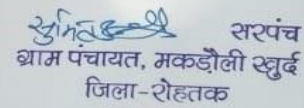 सरपंच
ग्राम पंचायत, मकड़ौली खुर्द
जिला-रोहतक